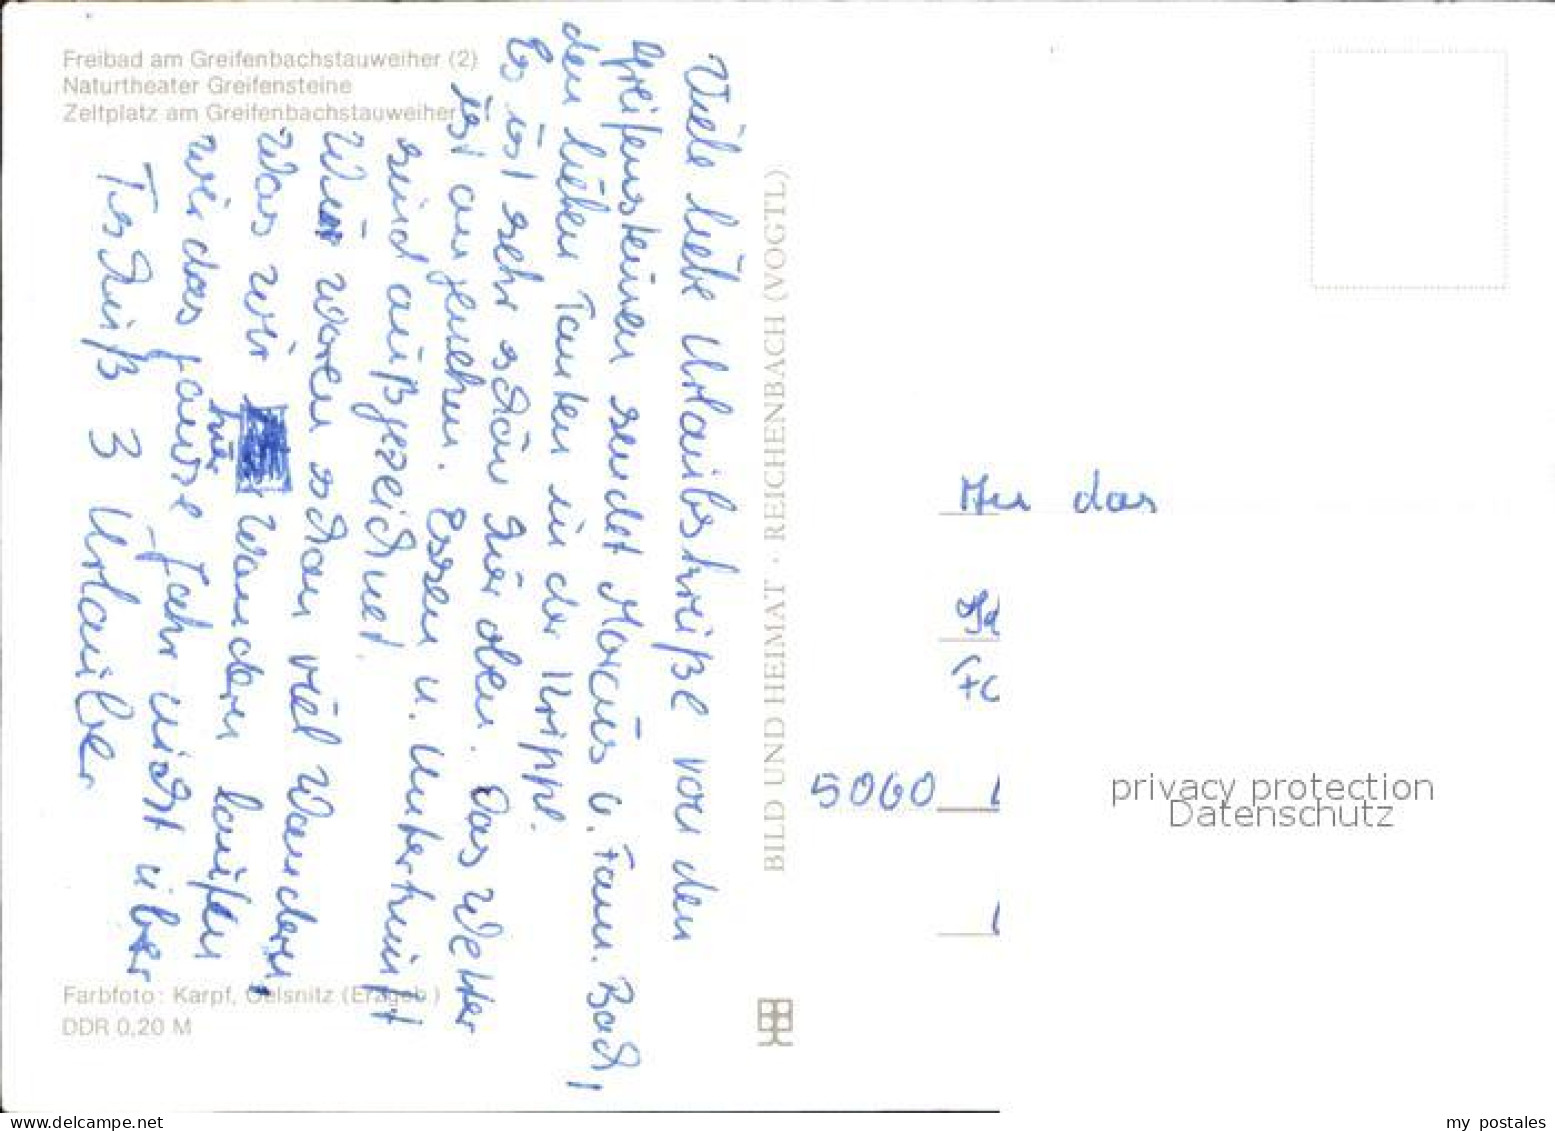 Freibad am Greifenbachstauweiher (2)
Naturtheater Greifensteine
Zeltplatz am Greifenbachstauweiher
Viele liebe Urlaubsgrüße von den
Greifensteinen sendet Marcus u. Fam. Bach,
den lieben Tanten in der Krippe.
Es ist sehr schön hier oben. Das Wetter
ist angenehm. Essen u. Unterkunft
sind außgezeichnet.
Wir waren schon viel Wandern,
was wir hier Wandern laufen
wir das ganze Jahr nicht über
Tschüß 3 Urlauber
Farbfoto: Karpf, Oelsnitz (Erzgeb.)
DDR 0,20 M
BILD UND HEIMAT · REICHENBACH (VOGTL)
An das
5060
privacy protection
Datenschutz
www.delcampe.net
my_postales